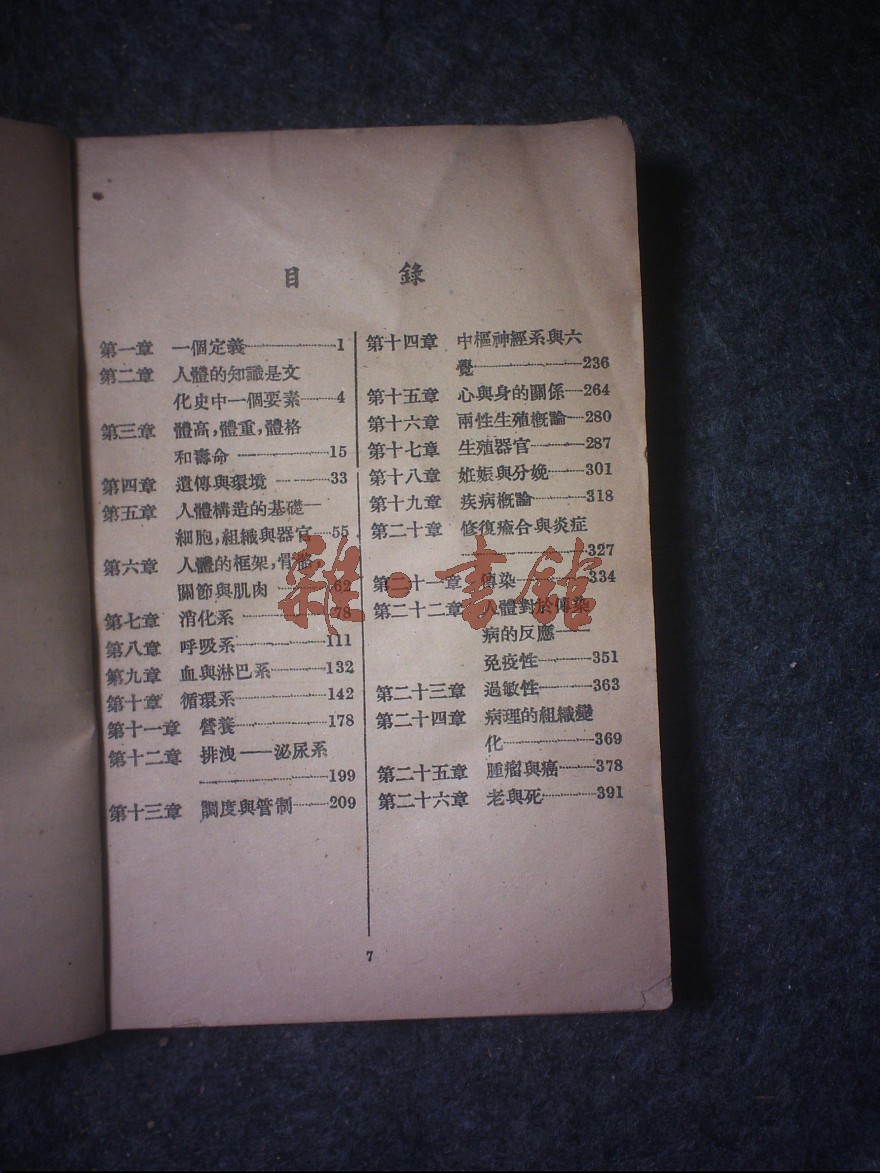 目　　　錄
第一章　一個定義……………1
第二章　人體的知識是文
化史中一個要素……4
第三章　體高，體重，體格
和壽命 ……………15
第四章　遺傳與環境 ………33
第五章　人體構造的基礎—
細胞，組織與器官…55
第六章　人體的框架，骨骼，
關節與肌肉 ………62
第七章　消化系 ……………78
第八章　呼吸系……………111
第九章　血與淋巴系………132
第十章　循環系……………142
第十一章　營養……………178
第十二章　排洩——泌尿系
……………………199
第十三章　調度與管制……209
第十四章　中樞神經系與六
覺…………………236
第十五章　心與身的關係…264
第十六章　兩性生殖概論…280
第十七章　生殖器官………287
第十八章　姙娠與分娩……301
第十九章　疾病概論………318
第二十章　修復癒合與炎症
……………………327
第二十一章　傳染…………334
第二十二章　人體對於傳染
病的反應——
免疫性………351
第二十三章　過敏性………363
第二十四章　病理的組織變
化……………369
第二十五章　腫瘤與癌……378
第二十六章　老與死………391
7
雜·書館